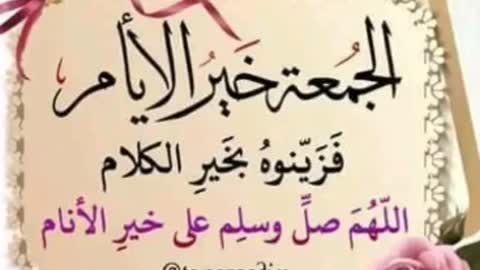 الجُمُعة خَيرُ الأيام
فَزَيّنوهُ بخَيرِ الكلام
اللّهُمَ صلِّ وسلِم على خيرِ الأنام